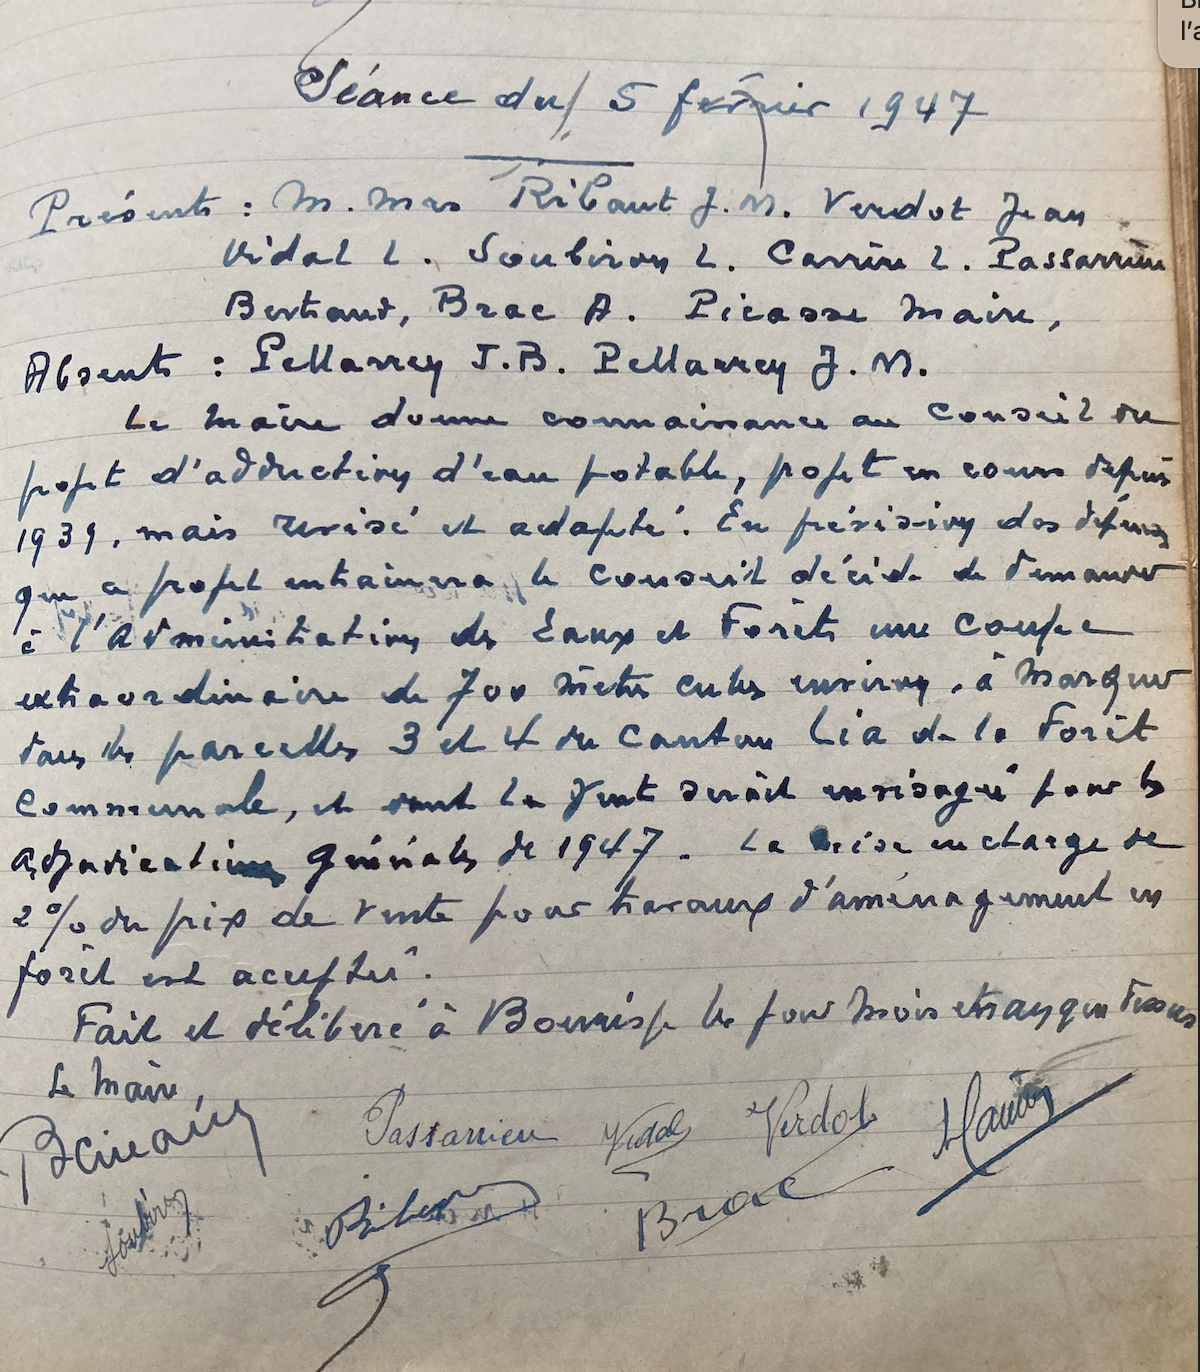 l'a
Séance du 5 février 1947
Présents : M. Mrs Ribaut J.M. Verdot Jean
Vidal L. Soubiron L. Carrère L. Passarrieu
Bertrand, Brac A. Picasse Maire,
Absents : Pellarrey J.B. Pellarrey J.M.
Le Maire donne connaissance au Conseil du
projet d'adduction d'eau potable, projet en cours depuis
1939, mais revisé et adapté. En prévision des dépenses
que ce projet entrainera le Conseil décide de demander
à l'Administration des Eaux et Forêts une coupe
extraordinaire de 700 mètres cubes environ, à marquer
dans les parcelles 3 et 4 du Canton Lia de la Forêt
Communale, et dont la vente serait envisagée pour les
adjudications générales de 1947. La mise en charge de
2% du prix de vente pour travaux d'aménagement en
forêt est acceptée.
Fait et délibéré à Bourisp les jour mois et an que dessus
Le Maire,
Passarrieu Vidal Verdot
Soubiron Ribaut Brac